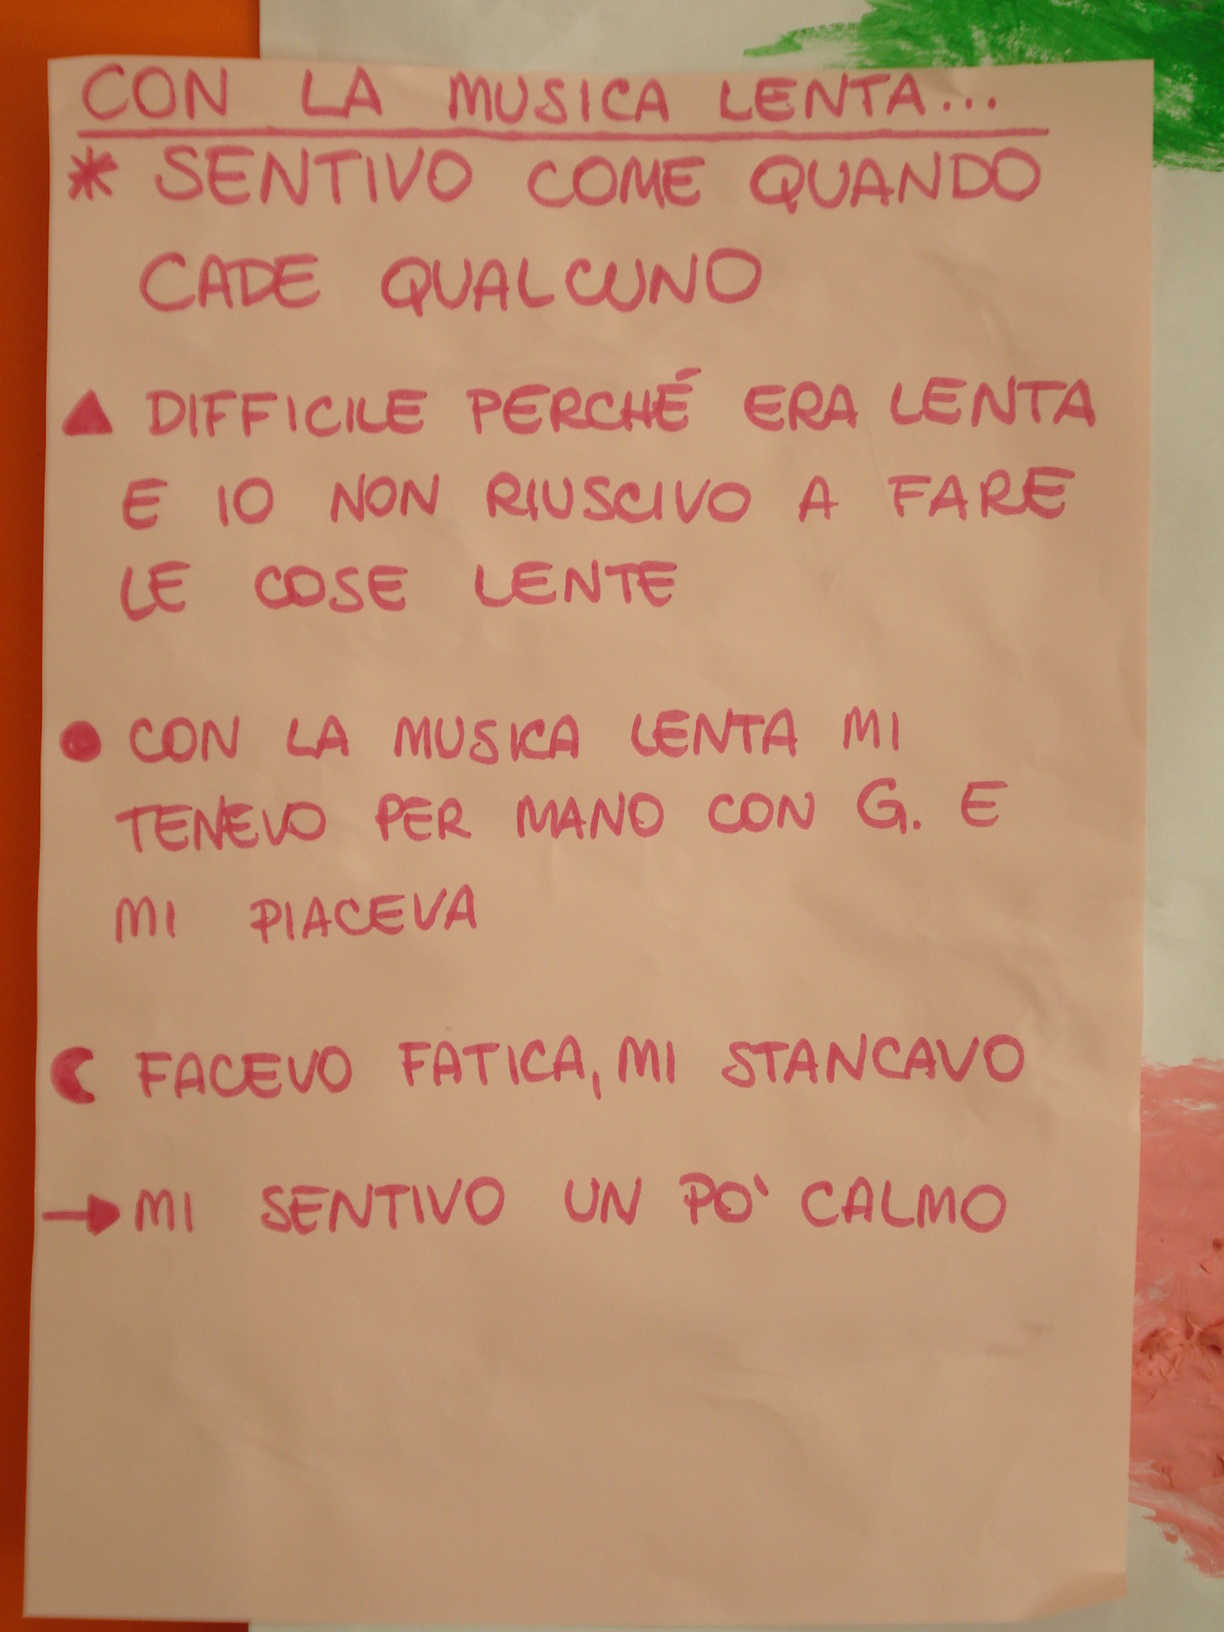 CON LA MUSICA LENTA...
* SENTIVO COME QUANDO
CADE QUALCUNO
▲ DIFFICILE PERCHÉ ERA LENTA
E IO NON RIUSCIVO A FARE
LE COSE LENTE
● CON LA MUSICA LENTA MI
TENEVO PER MANO CON G. E
MI PIACEVA
☾ FACEVO FATICA, MI STANCAVO
→ MI SENTIVO UN PO' CALMO